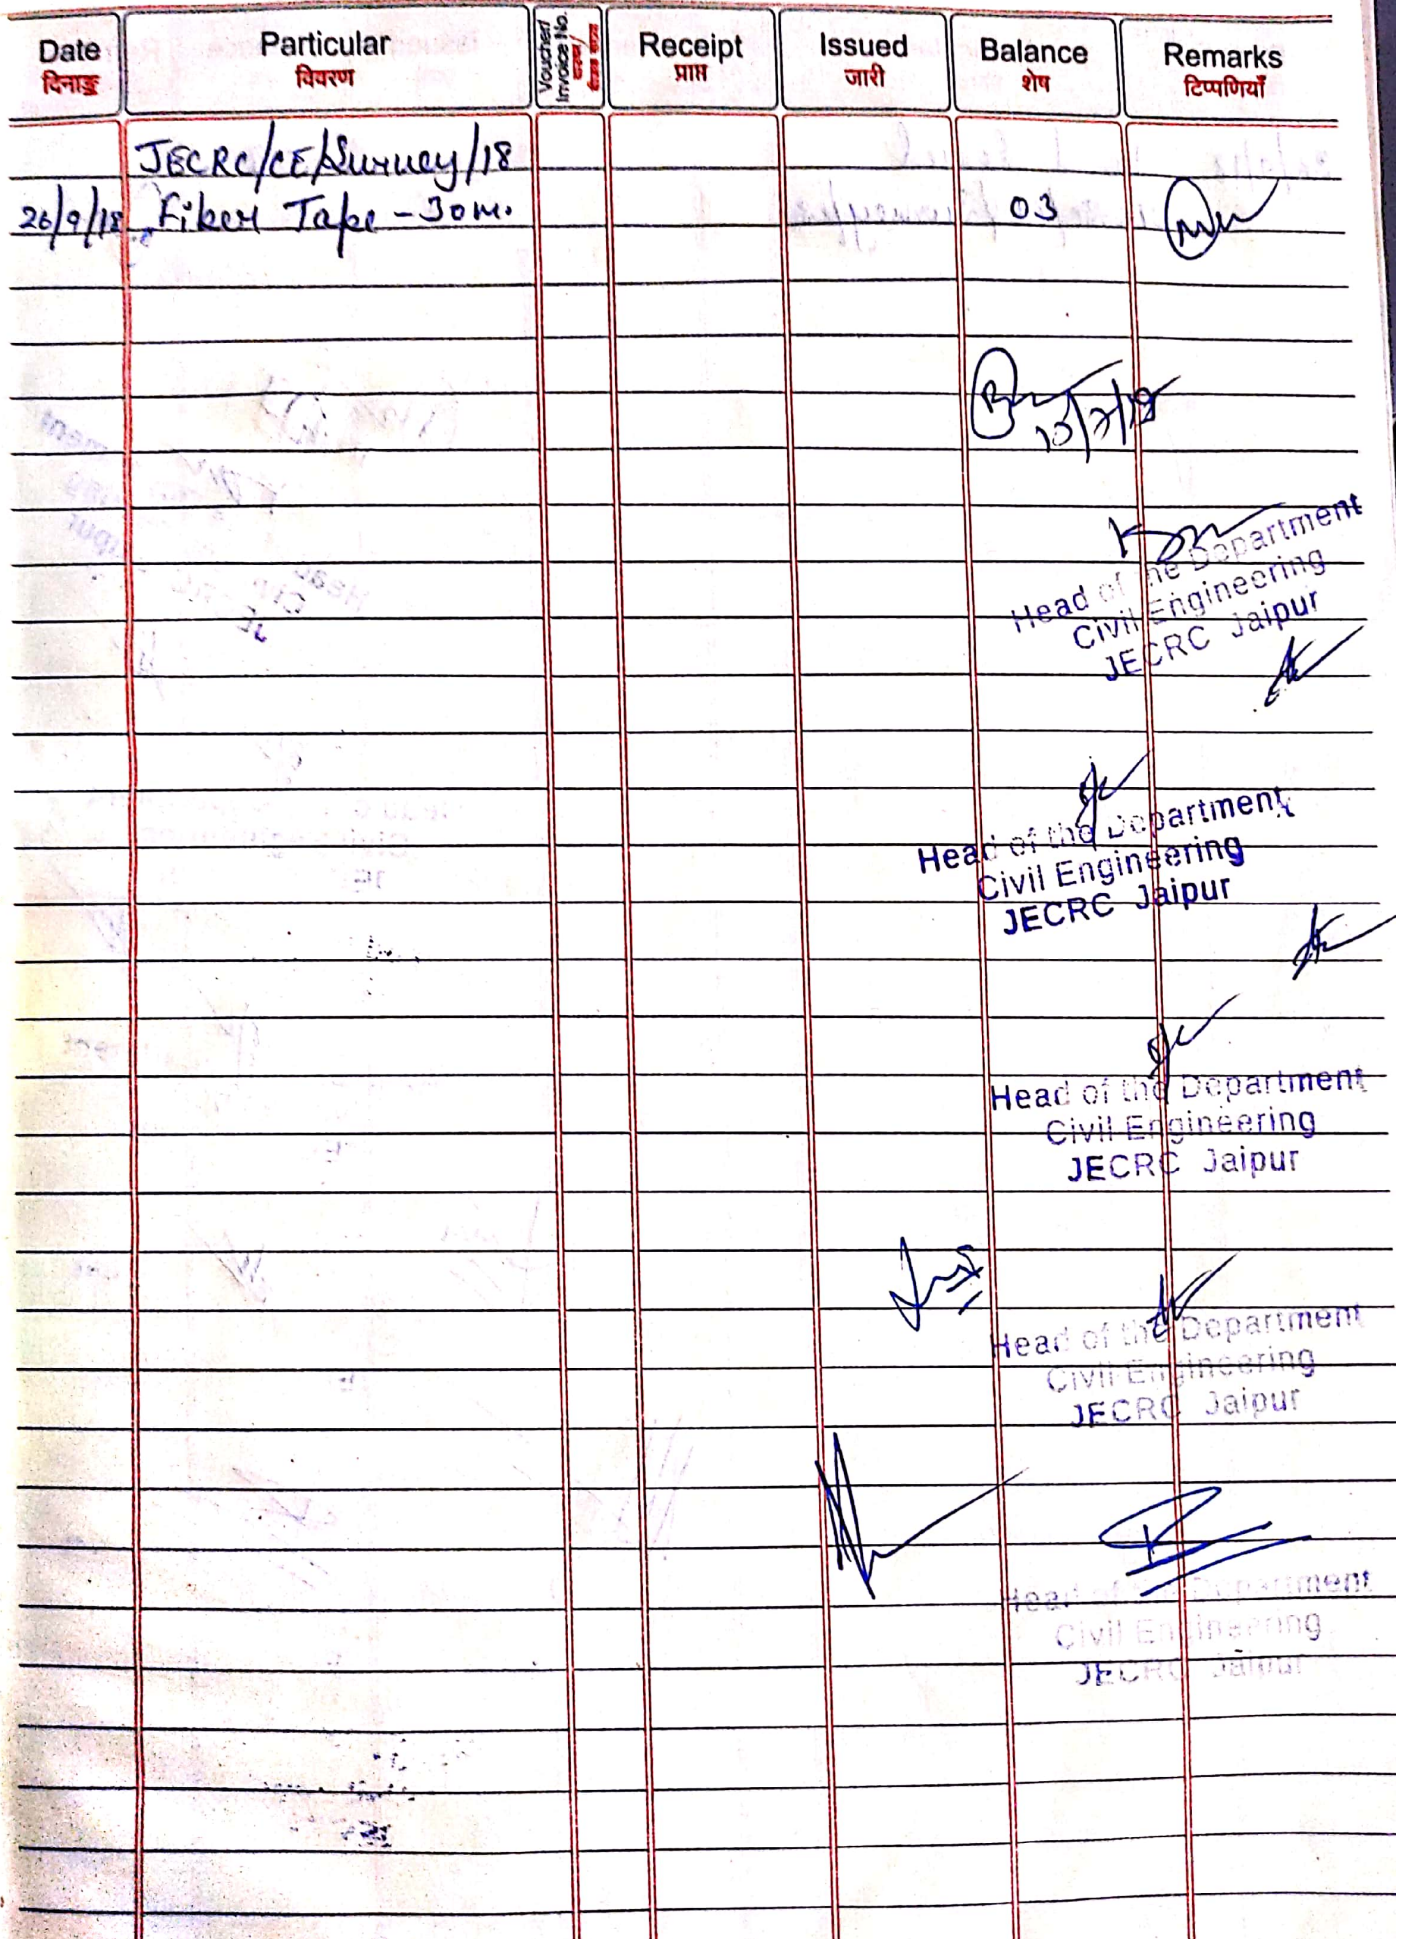 Date Particular Voucher/ Invoice No. Receipt Issued Balance Remarks
दिनाङ्क विवरण प्राप्त जारी शेष टिप्पणियाँ
JECRC/CE/Survey/18
26/9/18 Fiber Tape - 30m. 03
Head of the Department
Civil Engineering
JECRC Jaipur
Head of the Department
Civil Engineering
JECRC Jaipur
Head of the Department
Civil Engineering
JECRC Jaipur
Head of the Department
Civil Engineering
JECRC Jaipur
Head of the Department
Civil Engineering
JECRC Jaipur